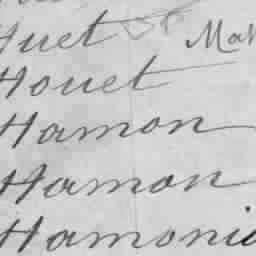 Huet Mat
Houet
Hamon
Hamon
Hamoni